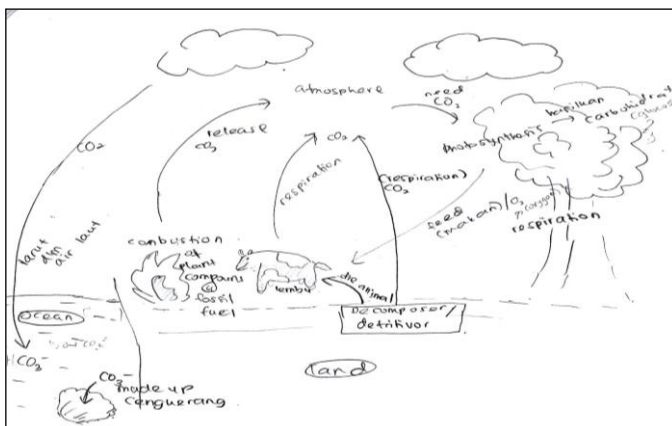 atmosphere
need
CO₂
release
CO₂
CO₂
CO₂
respiration
(respiration)
CO₂
photosynthesis
hasilkan
carbohidrat
(glucose
feed
(makan)/O₂
(oxygen)
respiration
combustion
of
plant
compound
@
fossil
fuel
lembu
die animal
Decomposer/
detritivor
larut
dlm
air laut
ocean
HCO₃⁻
CO₃⁻
made up
cengkerang
land